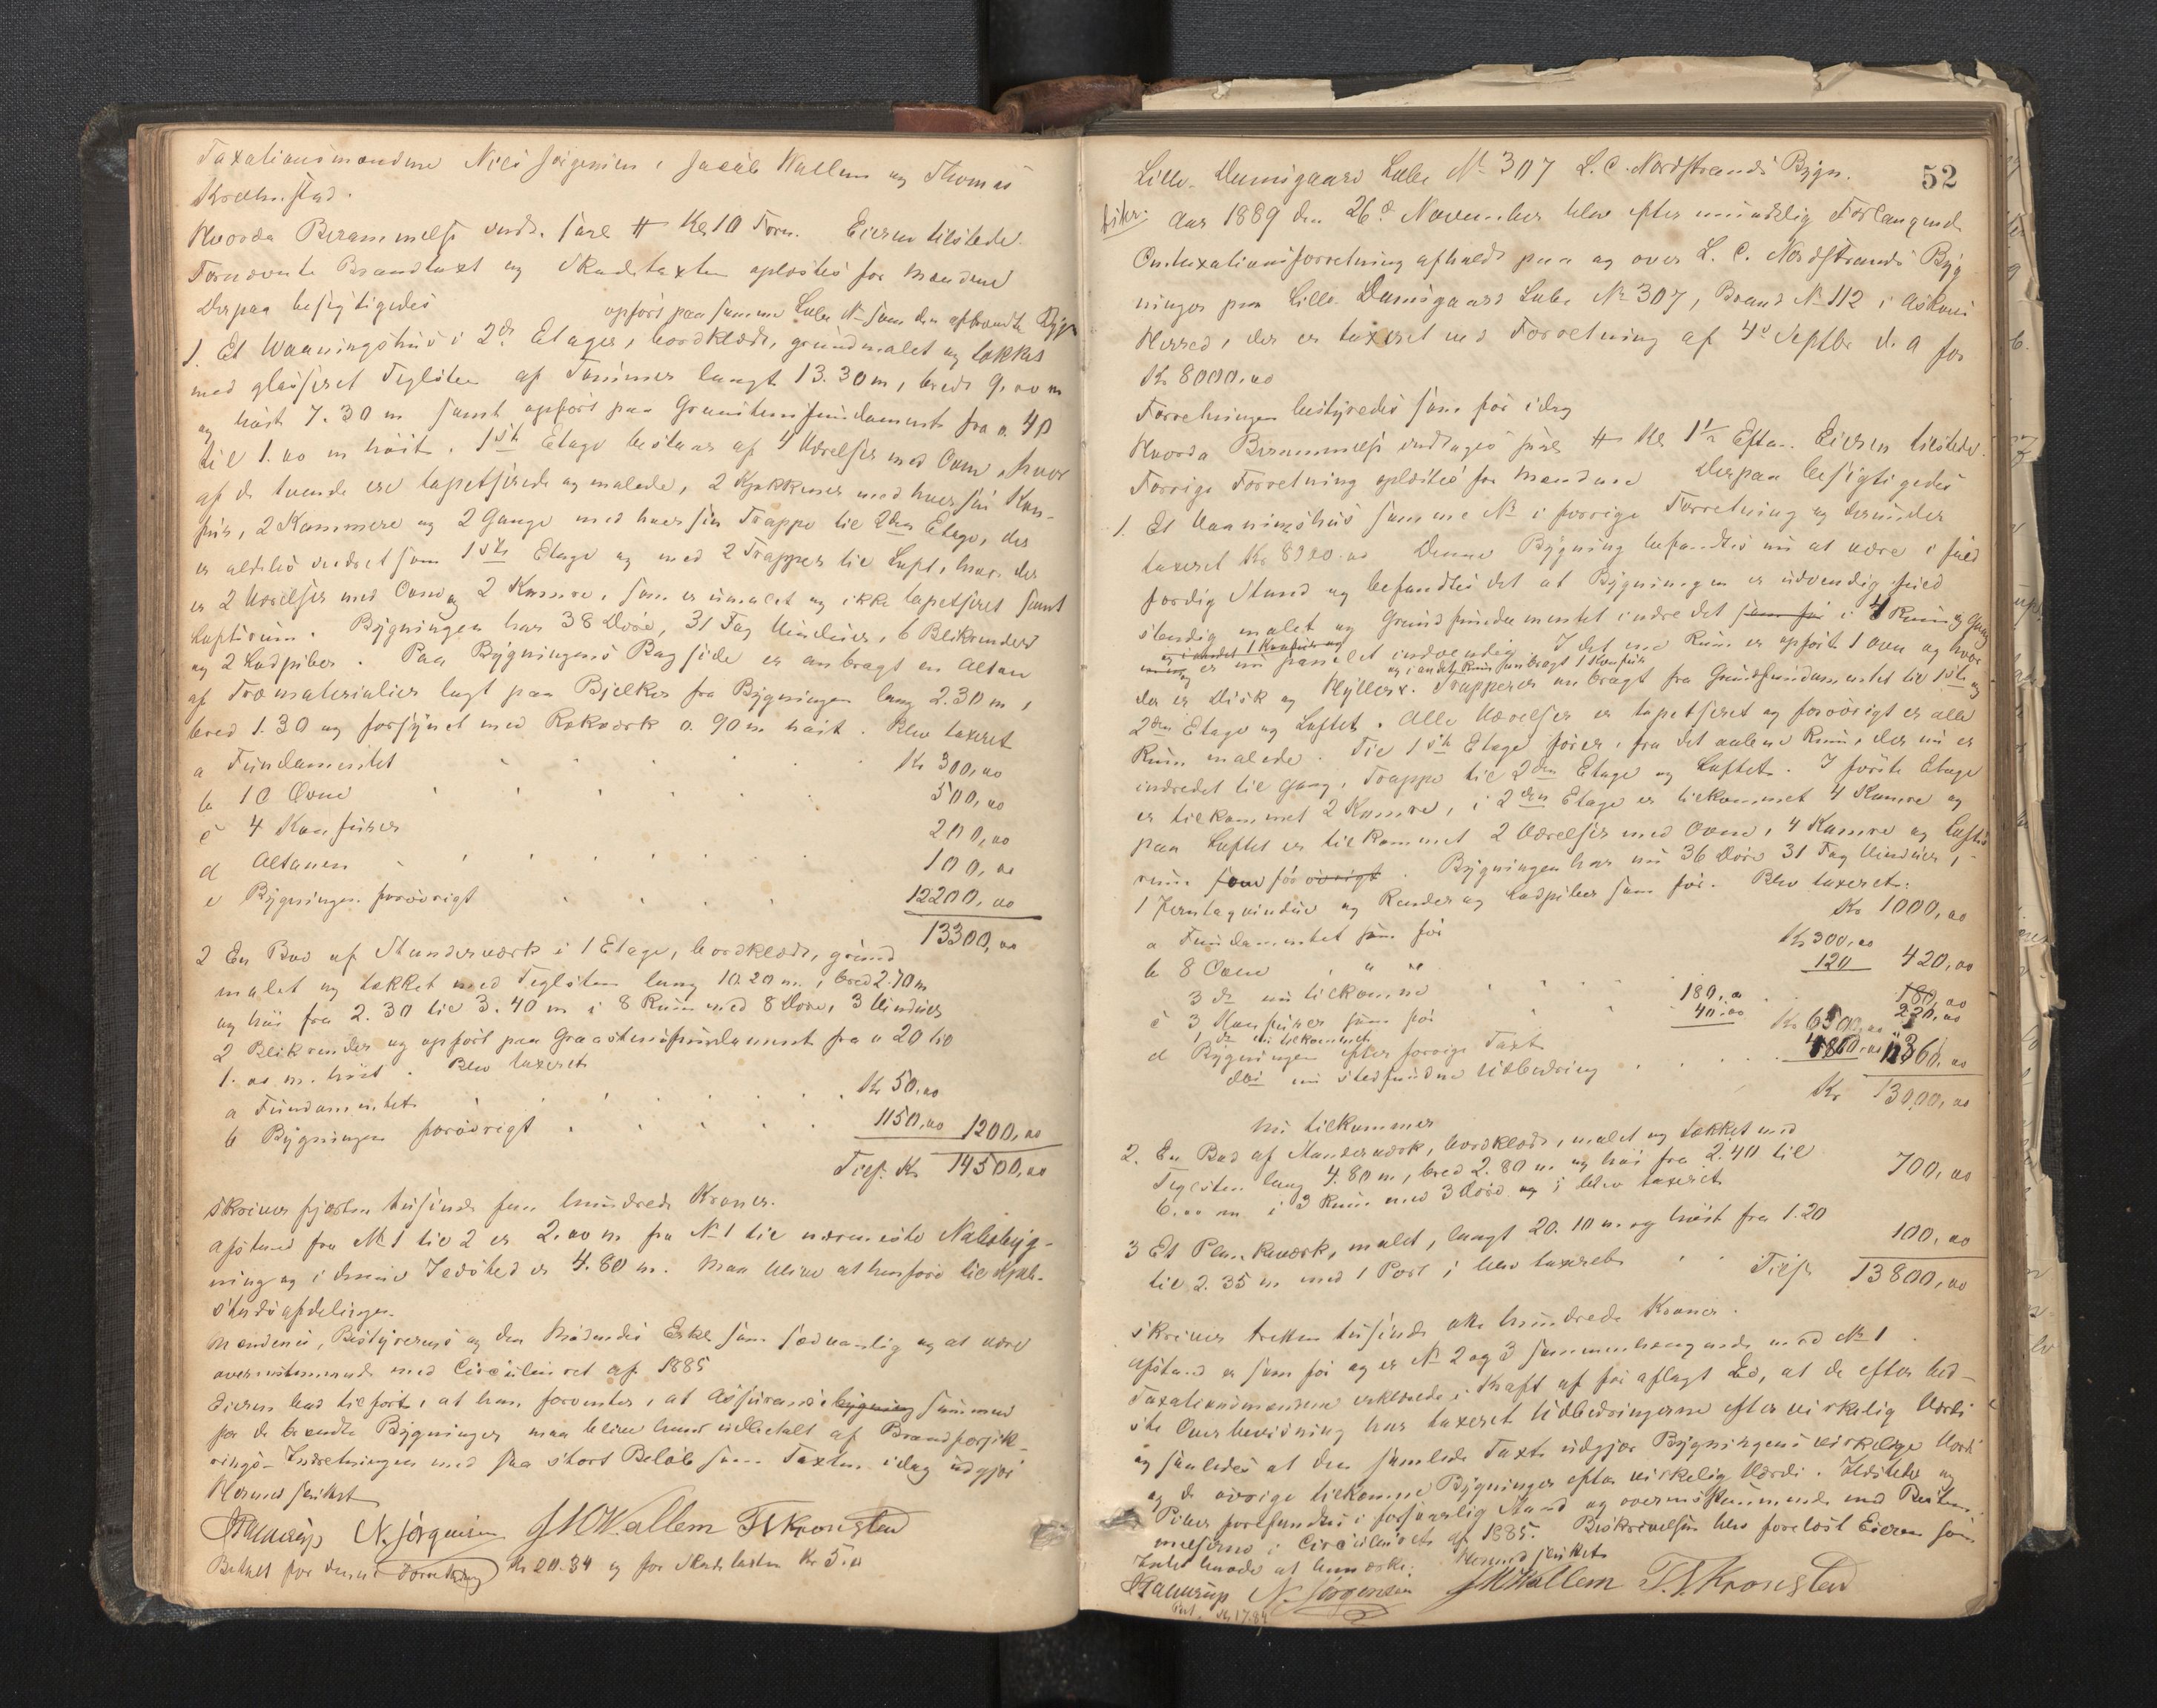 Taxationsmændene Niels Jørgensen, Jacob Wallem og Thomas
Kronstad.
Hvorda Berammelse endt. save # Kl 10 Form. Eieren tilstede
Fornævnte Brandtaxt og Skadetaxten oplæstes for Mændene
Derpaa besigtigedes
opført paa samme Lube No som den afbrændte Bygn
1. Et Vaaningshus i 2de Etager, bordklædt, grundmalet og takket
med glasseret Teglsten af Tømmer langt 13.30 m, bredt 9.00 m
og høit 7.30 m samt opført paa Graastensfundament fra 0.40
til 1.00 m høit. 1ste Etage bestaar af 4 Værelser med Ovne, hvor
af de tvende ere tapetserede og malede, 2 Kjøkkener med hver sin Kom-
fur, 2 Kammere og 2 Gange med hver sin Trappe til 2den Etage, der
er aldeles indredet som 1ste Etage og med 2 Trapper til Loft, hvor der
er 2 Værelser med Ovne og 2 Kamre, som er umalet og ikke tapetseret samt
Loftsrum. Bygningen har 38 Døre, 31 Fag Vinduer, 6 Blikrender
og 2 Ludpiber. Paa Bygningens Bagside er anbragt en Altan
af Træmaterialier lagt paa Bjelker fra Bygningen lang 2.30 m,
bred 1.30 og forsynet med Rækværk 0.90 m høit. Blev taxeret
a Fundamentet Kr 300,00
b 10 Ovne 500,00
c 4 Komfurer 200,00
d Altanen 100,00
e Bygningen forøvrigt 12200,00
13300,00
2 En Bod af Stænderværk i 1 Etage, bordklædt, grund
malet og tækket med Teglsten lang 10.20 m, bred 2.70 m
og høi fra 2.30 til 3.40 m i 8 Rum med 8 Døre, 3 Vinduer
2 Blikrender og opført paa Graastensfundament fra 0.20 til
1.00 m. høit. Blev taxeret
a Fundamentet Kr 50,00
b Bygningen forøvrigt 1150,00 1200,00
Tils. Kr 14500,00
skriver fjorten tusinde fem hundrede Kroner.
Afstand fra No 1 til 2 er 2.00 m fra No 1 til nærmeste Nabobyg-
ning og i denne Ildsted er 4.80 m. Maa blive at henføre til Kjøb-
stadsafdelingen.
Mændenes, Bestyrerens og den Mødendes Erkl som sædvanlig og at være
overensstemmende med Circulæret af 1885
Eieren bad tilført, at han forventer, at Assurance bygning summen
for de brændte Bygninger maa blive ham udbetalt af Brandforsik-
rings-Indretningen med saa stort Beløb som Taxten idag udgjør
Hermed sluttet
N. Jørgensen J M Wallem T S Kronstad
Betalt for denne Forretning Kr 20.34 og for Skadetaxten Kr 5.00
52
Lille-Damsgaard Lube No 307 L. C. Nordstrands Bygn.
Aar 1889 den 26de November blev efter mundtlig Forlangende
Omtaxationsforretning afholdt paa og over L. C. Nordstrands Byg
ninger paa Lille-Damsgaard Lube No 307, Brand No 112 i Askøens
Herred, der er taxeret ved Forretning af 4de Septbr d. A for
Kr 8000,00
Forretningen bestyredes som før idag
Hvorda Berammelse endtages save # Kl 1½ Efterm. Eieren tilstede.
Forrige Forretning oplæstes for Mændene Derpaa besigtigedes
1. Et Vaaningshus samme No i forrige Forretning og derunder
taxeret Kr 8920.00 Denne Bygning befandtes nu at være i fuld
færdig Stand og befandtes det at Bygningen er udvendig fuld
stændig malet og Grundfundamentet indredet som før i 4 Rum og Gang
og i andet 1 Komfur og
er nu panelet indvendig. I det ene Rum er opført 1 Ovn og hvor
og i andet Rum anbragt 1 Komfur
der er Disk og Hylder. Trapper er anbragt fra Grundfundamentet til 1ste og
2den Etage og Loftet. Alle Værelser er tapetseret og forøvrigt er alle
Rum malede. Til 1ste Etage fører, fra det aabne Rum, der nu er
indredet til Gang, Trappe til 2den Etage og Loftet. I første Etage
er tilkommet 2 Kamre, i 2den Etage er tilkommet 4 Kamre og
paa Loftet er tilkommet 2 Værelser med Ovne, 4 Kamre og Lofts
rum som før øvrigt. Bygningen har nu 36 Døre 31 Fag Vinduer,
1 Jerntagvindue og Render og Ludpiber som før. Blev taxeret:
a Fundamentet som før Kr 1000,00
b 8 Ovne " " Kr 300,00
3 do nu tilkomne 120 420,00
c 3 Komfurer som før 180,00 180,00
1 do nu tilkommet 40.00 220,00
d Bygningen efter forrige Taxt Kr 6500,00
do nu stedfundne Udbedring 4860,00 11360,00
Kr 13000,00
Nu tilkommer
2. En Bod af Stænderværk, bordklædt, malet og tækket med
Teglsten lang 4.80 m, bred 2.80 m. og høi fra 2.40 til
6.00 m i 3 Rum med 3 Døre og i blev taxeret 700,00
3 Et Plankeværk, malet, langt 20.10 m. og høit fra 1.20
til 2.35 m med 1 Port i blev taxeret 100,00
Tils. 13800,00
skriver tretten tusinde otte hundrede Kroner.
Afstand er som før og er No 2 og 3 sammenhængende med No 1.
Taxationsmændene erklærede i Kraft af før aflagt Ed, at de efter bed-
ste Overbevisning har taxeret Udbedringerne efter virkelig Værdi
og saaledes at den samlede Taxt udgjør Bygningens virkelige Værdi
og de øvrige tilkomne Bygninger efter virkelig Værdi. Ildsteder og
Piber forefandtes i forsvarlig Stand og overensstemmende med Bestem-
melserne i Circulæret af 1885. Beskrivelsen blev forelæst Eieren som
Intet havde at bemærke. Hermed sluttet
N. Jørgensen J M Wallem T. S Kronstad
Bet. Kr 17.84